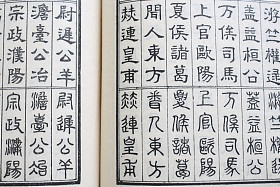 游竺權逯游竺權逯
蓋益桓公蓋益桓公
万俟司馬万俟司馬
上官歐陽上官歐陽
夏侯諸葛夏侯諸葛
聞人東方聞人東方
赫連皇甫赫連皇甫
尉遲公羊尉遲公羊
澹臺公冶澹臺公冶
宗政濮陽宗政濮陽